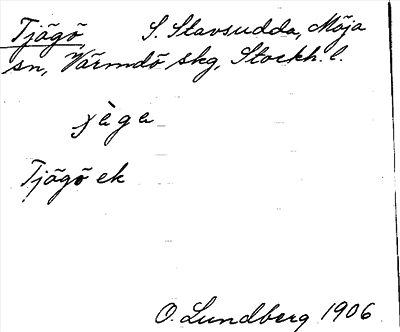 Tjägö S. Stavsudda, Möja
sn, Värmdö skg, Stockh. l.
Tjägö ek
O. Lundberg 1906